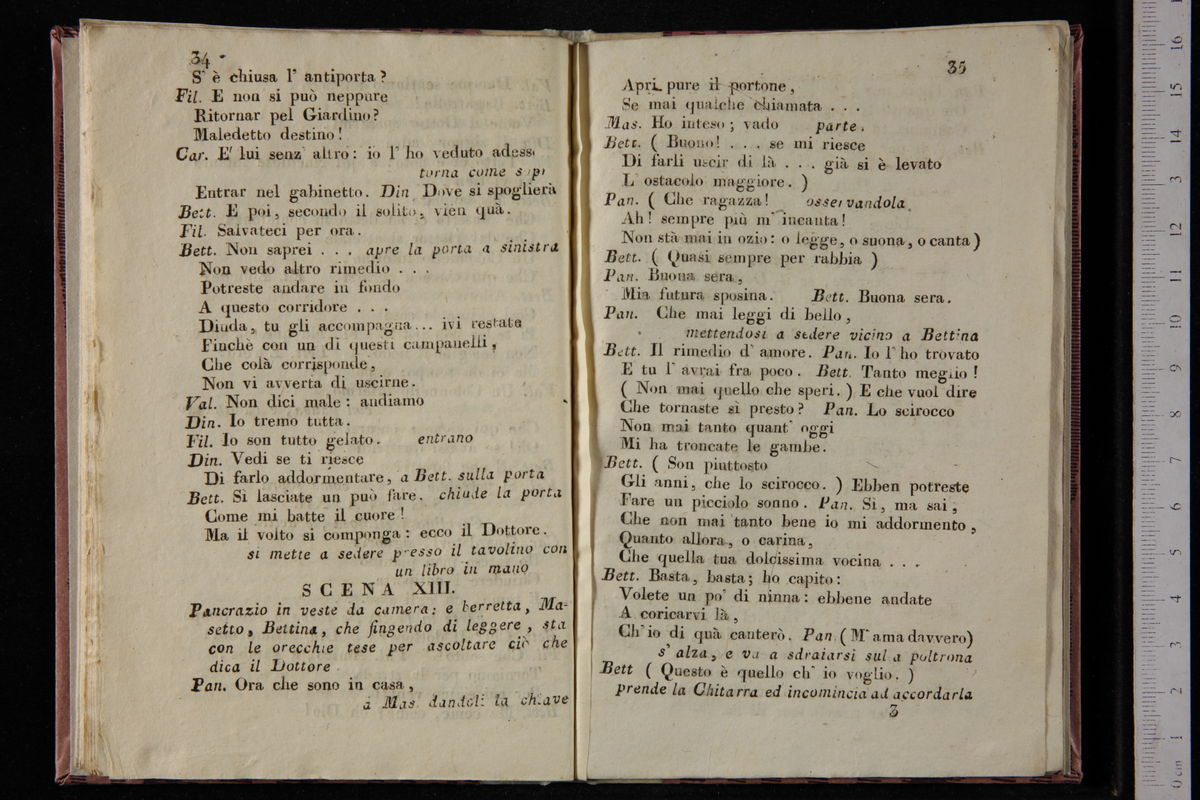 34
S' è chiusa l' antiporta ?
Fil. E non si può neppure
Ritornar pel Giardino?
Maledetto destino !
Car. E' lui senz' altro : io l' ho veduto adess
torna come s pr
Entrar nel gabinetto. Din Dove si spoglierà
Bett. E poi, secondo il solito, vien quà.
Fil. Salvateci per ora.
Bett. Non saprei . . . apre la porta a sinistra
Non vedo altro rimedio . . .
Potreste andare in fondo
A questo corridore . . .
Dinda, tu gli accompagna... ivi restate
Finchè con un di questi campanelli,
Che colà corrisponde,
Non vi avverta di uscirne.
Val. Non dici male : andiamo
Din. Io tremo tutta.
Fil. Io son tutto gelato. entrano
Din. Vedi se ti riesce
Di farlo addormentare, a Bett. sulla porta
Bett. Si lasciate un può fare. chiude la porta
Come mi batte il cuore !
Ma il volto si componga : ecco il Dottore.
si mette a sedere presso il tavolino con
un libro in mano
SCENA XIII.
Pancrazio in veste da camera; e berretta, Ma-
setto, Bettina, che fingendo di leggere, sta
con le orecchie tese per ascoltare ciò che
dica il Dottore
Pan. Ora che sono in casa,
a Mas. dandoli la chiave
35
Apri pure il portone,
Se mai qualche chiamata . . .
Mas. Ho inteso ; vado parte.
Bett. ( Buono! . . . se mi riesce
Di farli uscir di là . . . già si è levato
L' ostacolo maggiore. )
Pan. ( Che ragazza! osservandola.
Ah! sempre più m' incanta!
Non stà mai in ozio : o legge, o suona, o canta)
Bett. ( Quasi sempre per rabbia )
Pan. Buona sera,
Mia futura sposina. Bett. Buona sera.
Pan. Che mai leggi di bello,
mettendosi a sedere vicino a Bettina
Bett. Il rimedio d' amore. Pan. Io l' ho trovato
E tu l' avrai fra poco. Bett. Tanto meglio !
( Non mai quello che speri. ) E che vuol dire
Che tornaste sì presto ? Pan. Lo scirocco
Non mai tanto quant' oggi
Mi ha troncate le gambe.
Bett. ( Son piuttosto
Gli anni, che lo scirocco. ) Ebben potreste
Fare un picciolo sonno. Pan. Sì, ma sai,
Che non mai tanto bene io mi addormento,
Quanto allora, o carina,
Che quella tua dolcissima vocina . . .
Bett. Basta, basta; ho capito :
Volete un po' di ninna : ebbene andate
A coricarvi là,
Ch' io di quà canterò. Pan. ( M' ama davvero)
s' alza, e va a sdraiarsi sul a poltrona
Bett ( Questo è quello ch' io voglio. )
prende la Chitarra ed incomincia ad accordarla
3